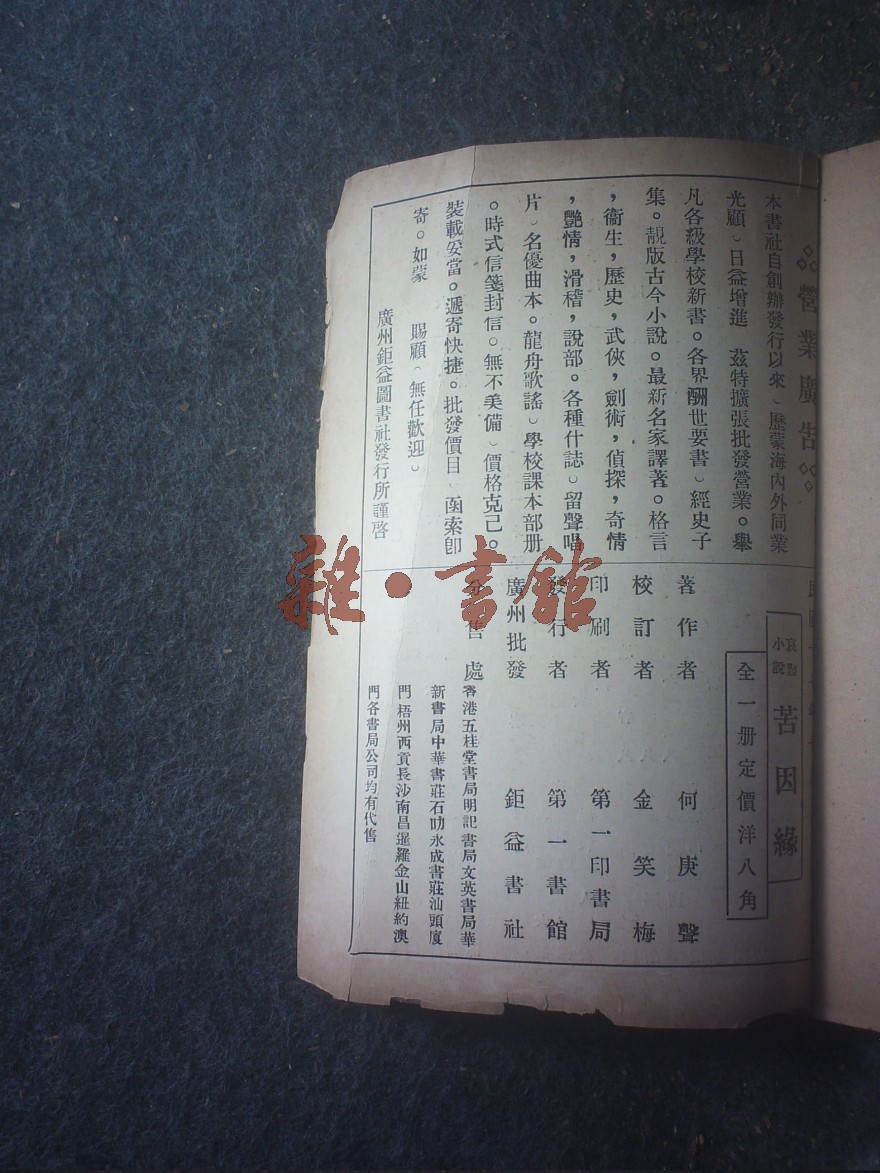 營業廣告
本書社自創辦發行以來、歷蒙海內外同業
光顧、日益增進 茲特擴張批發營業。舉
凡各級學校新書。各界酬世要書、經史子
集。靚版古今小說。最新名家譯著。格言
，衞生，歷史，武俠，劍術，偵探，奇情
，艷情，滑稽，說部。各種什誌、留聲唱
片、名優曲本。龍舟歌謠、學校課本部册
。時式信箋封信。無不美備、價格克己。
裝載妥當。遞寄快捷。批發價目、函索卽
寄。如蒙 賜顧、無任歡迎。
廣州鉅益圖書社發行所謹啓
小說 苦因緣
全一册定價洋八角
著作者 何庚聲
校訂者 金笑梅
印刷者 第一印書局
發行者 第一書館
廣州批發 鉅益書社
分售處 香港五桂堂書局明記書局文英書局華
新書局中華書莊石叻永成書莊汕頭厦
門梧州西貢長沙南昌暹羅金山紐約澳
門各書局公司均有代售
雜·書館